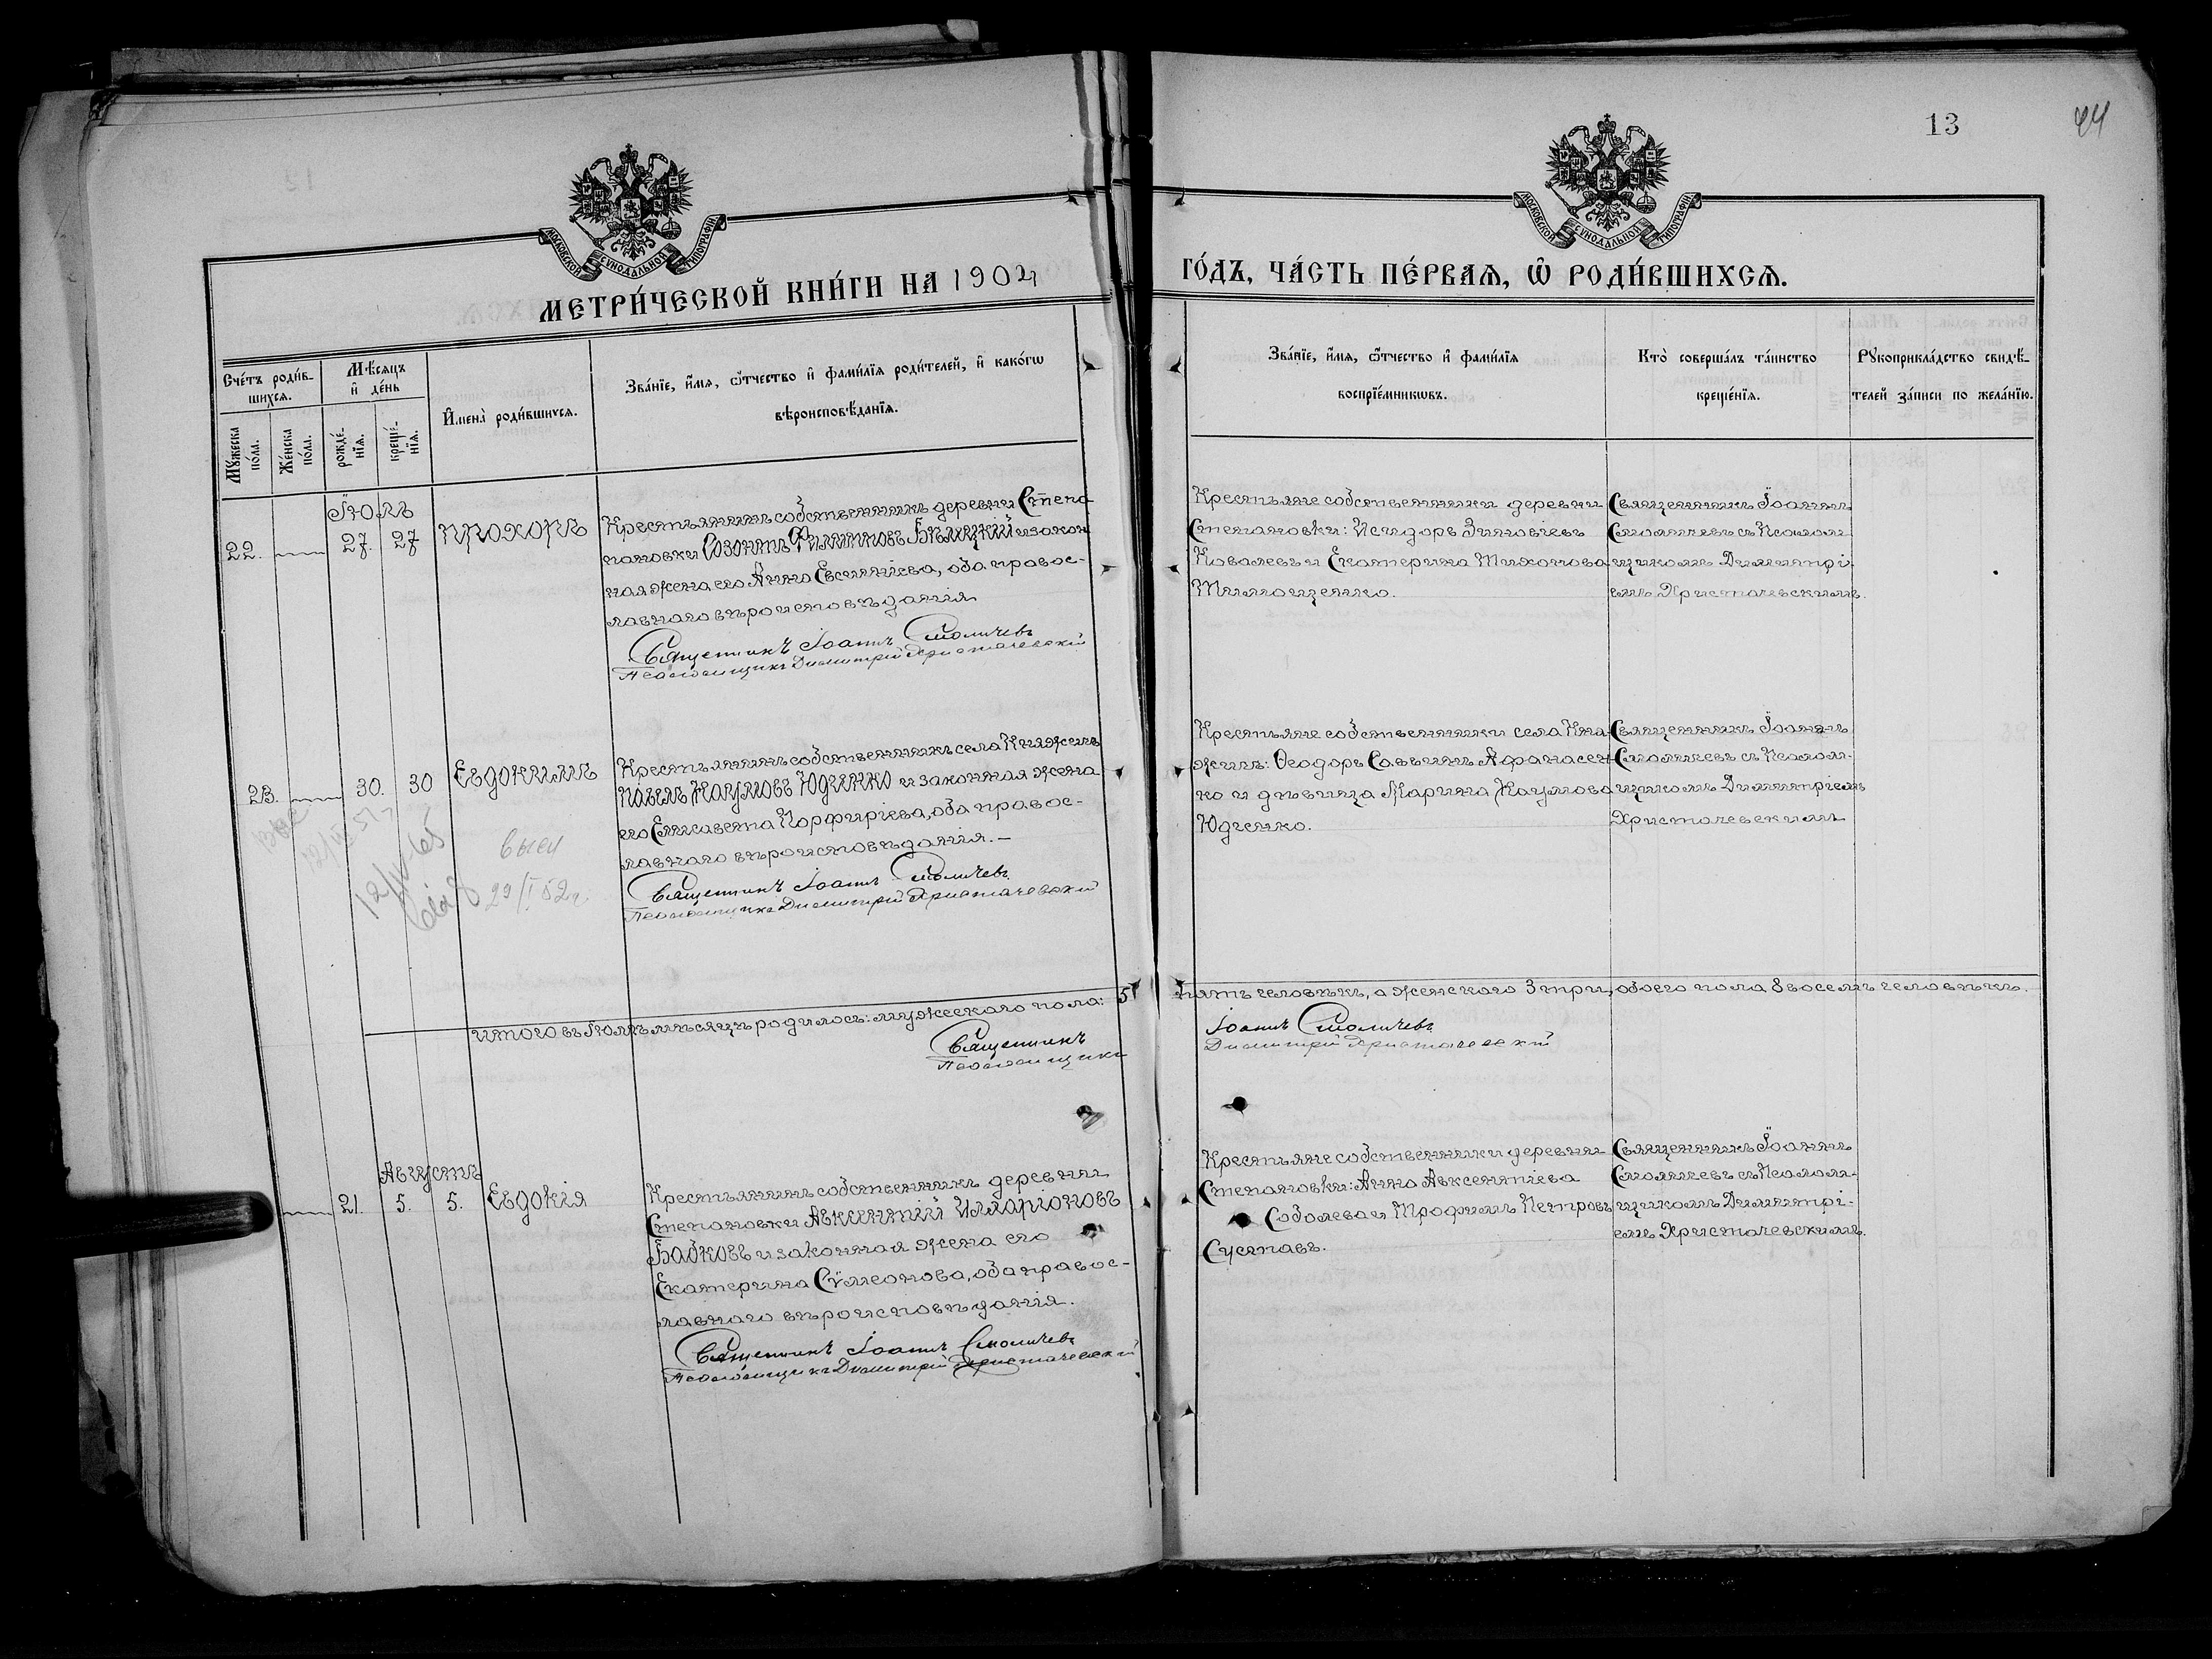 13
44
МОСКОВСКОЙ СѴНОДАЛЬНОЙ ТИПОГРАФІИ
МОСКОВСКОЙ СѴНОДАЛЬНОЙ ТИПОГРАФІИ
МЕТРИ́ЧЕСКОЙ КНИ́ГИ НА 1904
ГО́ДЪ, ЧА́СТЬ ПЕ́РВАѦ, Ѽ РОДИ́ВШИХСѦ.
Сче́тъ роди́в-
шихсѧ.
Мꙋ́жеска по́ла.
Же́нска по́ла.
Мѣ́сѧцъ
и҆ де́нь
рожде́-
нїѧ.
креще́-
нїѧ.
И҆мена̀ роди́вшихсѧ.
Зва́нїе, и҆́мѧ, ѻ҆́тчество и҆ фами́лїѧ роди́телей, и҆ како́гѡ
вѣроисповѣ́данїѧ.
Зва́нїе, и҆́мѧ, ѻ҆́тчество и҆ фами́лїѧ
воспрїе́мникѡвъ.
Кто̀ соверша́лъ та́инство
креще́нїѧ.
Рꙋкоприкла́дство свидѣ́-
телей за́писи по жела́нїю.
Іюль
22. 27. 27 Прохоръ
Крестьянинъ собственникъ деревни Степа-
новки Созонтъ Филипповъ Бѣлицкій и закон-
ная жена его Анна Евсигніева, оба правос-
лавнаго вѣроисповѣданія
Священникъ Іоаннъ Смоличевъ
Псаломщикъ Димитрій Христачевскій
Крестьяне собственники деревни
Степановки: Исидоръ Зиновіевъ
Ковалевъ и Екатерина Тихонова
Тимошенко.
Священникъ Іоаннъ
Смоличевъ съ Псалом-
щикомъ Димитрі-
емъ Христачевскимъ.
23. 30. 30 Евдокимъ
Крестьянинъ собственникъ села Княжичъ
Павелъ Наумовъ Юдченко и законная жена
его Елисавета Порфиріева, оба правос-
лавнаго вѣроисповѣданія.—
Священникъ Іоаннъ Смоличевъ
Псаломщикъ Димитрій Христачевскій
12/IV-65
высл
29/I 52г.
Крестьяне собственники села Кня-
жичъ: Ѳеодоръ Саввинъ Афанасен-
ко и дѣвица Марина Наумова
Юдченко.
Священникъ Іоаннъ
Смоличевъ съ Псалом-
щикомъ Димитріемъ
Христачевскимъ
Итого въ Іюлѣ мѣсяцѣ родилось: мужескаго пола: 5 пять человѣкъ, а женскаго 3 три, обоего пола 8 восемь человѣкъ.
Священникъ Іоаннъ Смоличевъ
Псаломщикъ Димитрій Христачевскій
Августъ
21. 5. 5. Евдокія
Крестьянинъ собственникъ деревни
Степановки Авксентій Илларіоновъ
Бабковъ и законная жена его
Екатерина Сѵмеонова, оба правос-
лавнаго вѣроисповѣданія.
Священникъ Іоаннъ Смоличевъ
Псаломщикъ Димитрій Христачевскій
Крестьяне собственники деревни
Степановки: Анна Авксентіева
Соболева и Трофимъ Петровъ
Суставъ.
Священникъ Іоаннъ
Смоличевъ съ Псалом-
щикомъ Димитрі-
емъ Христачевскимъ.